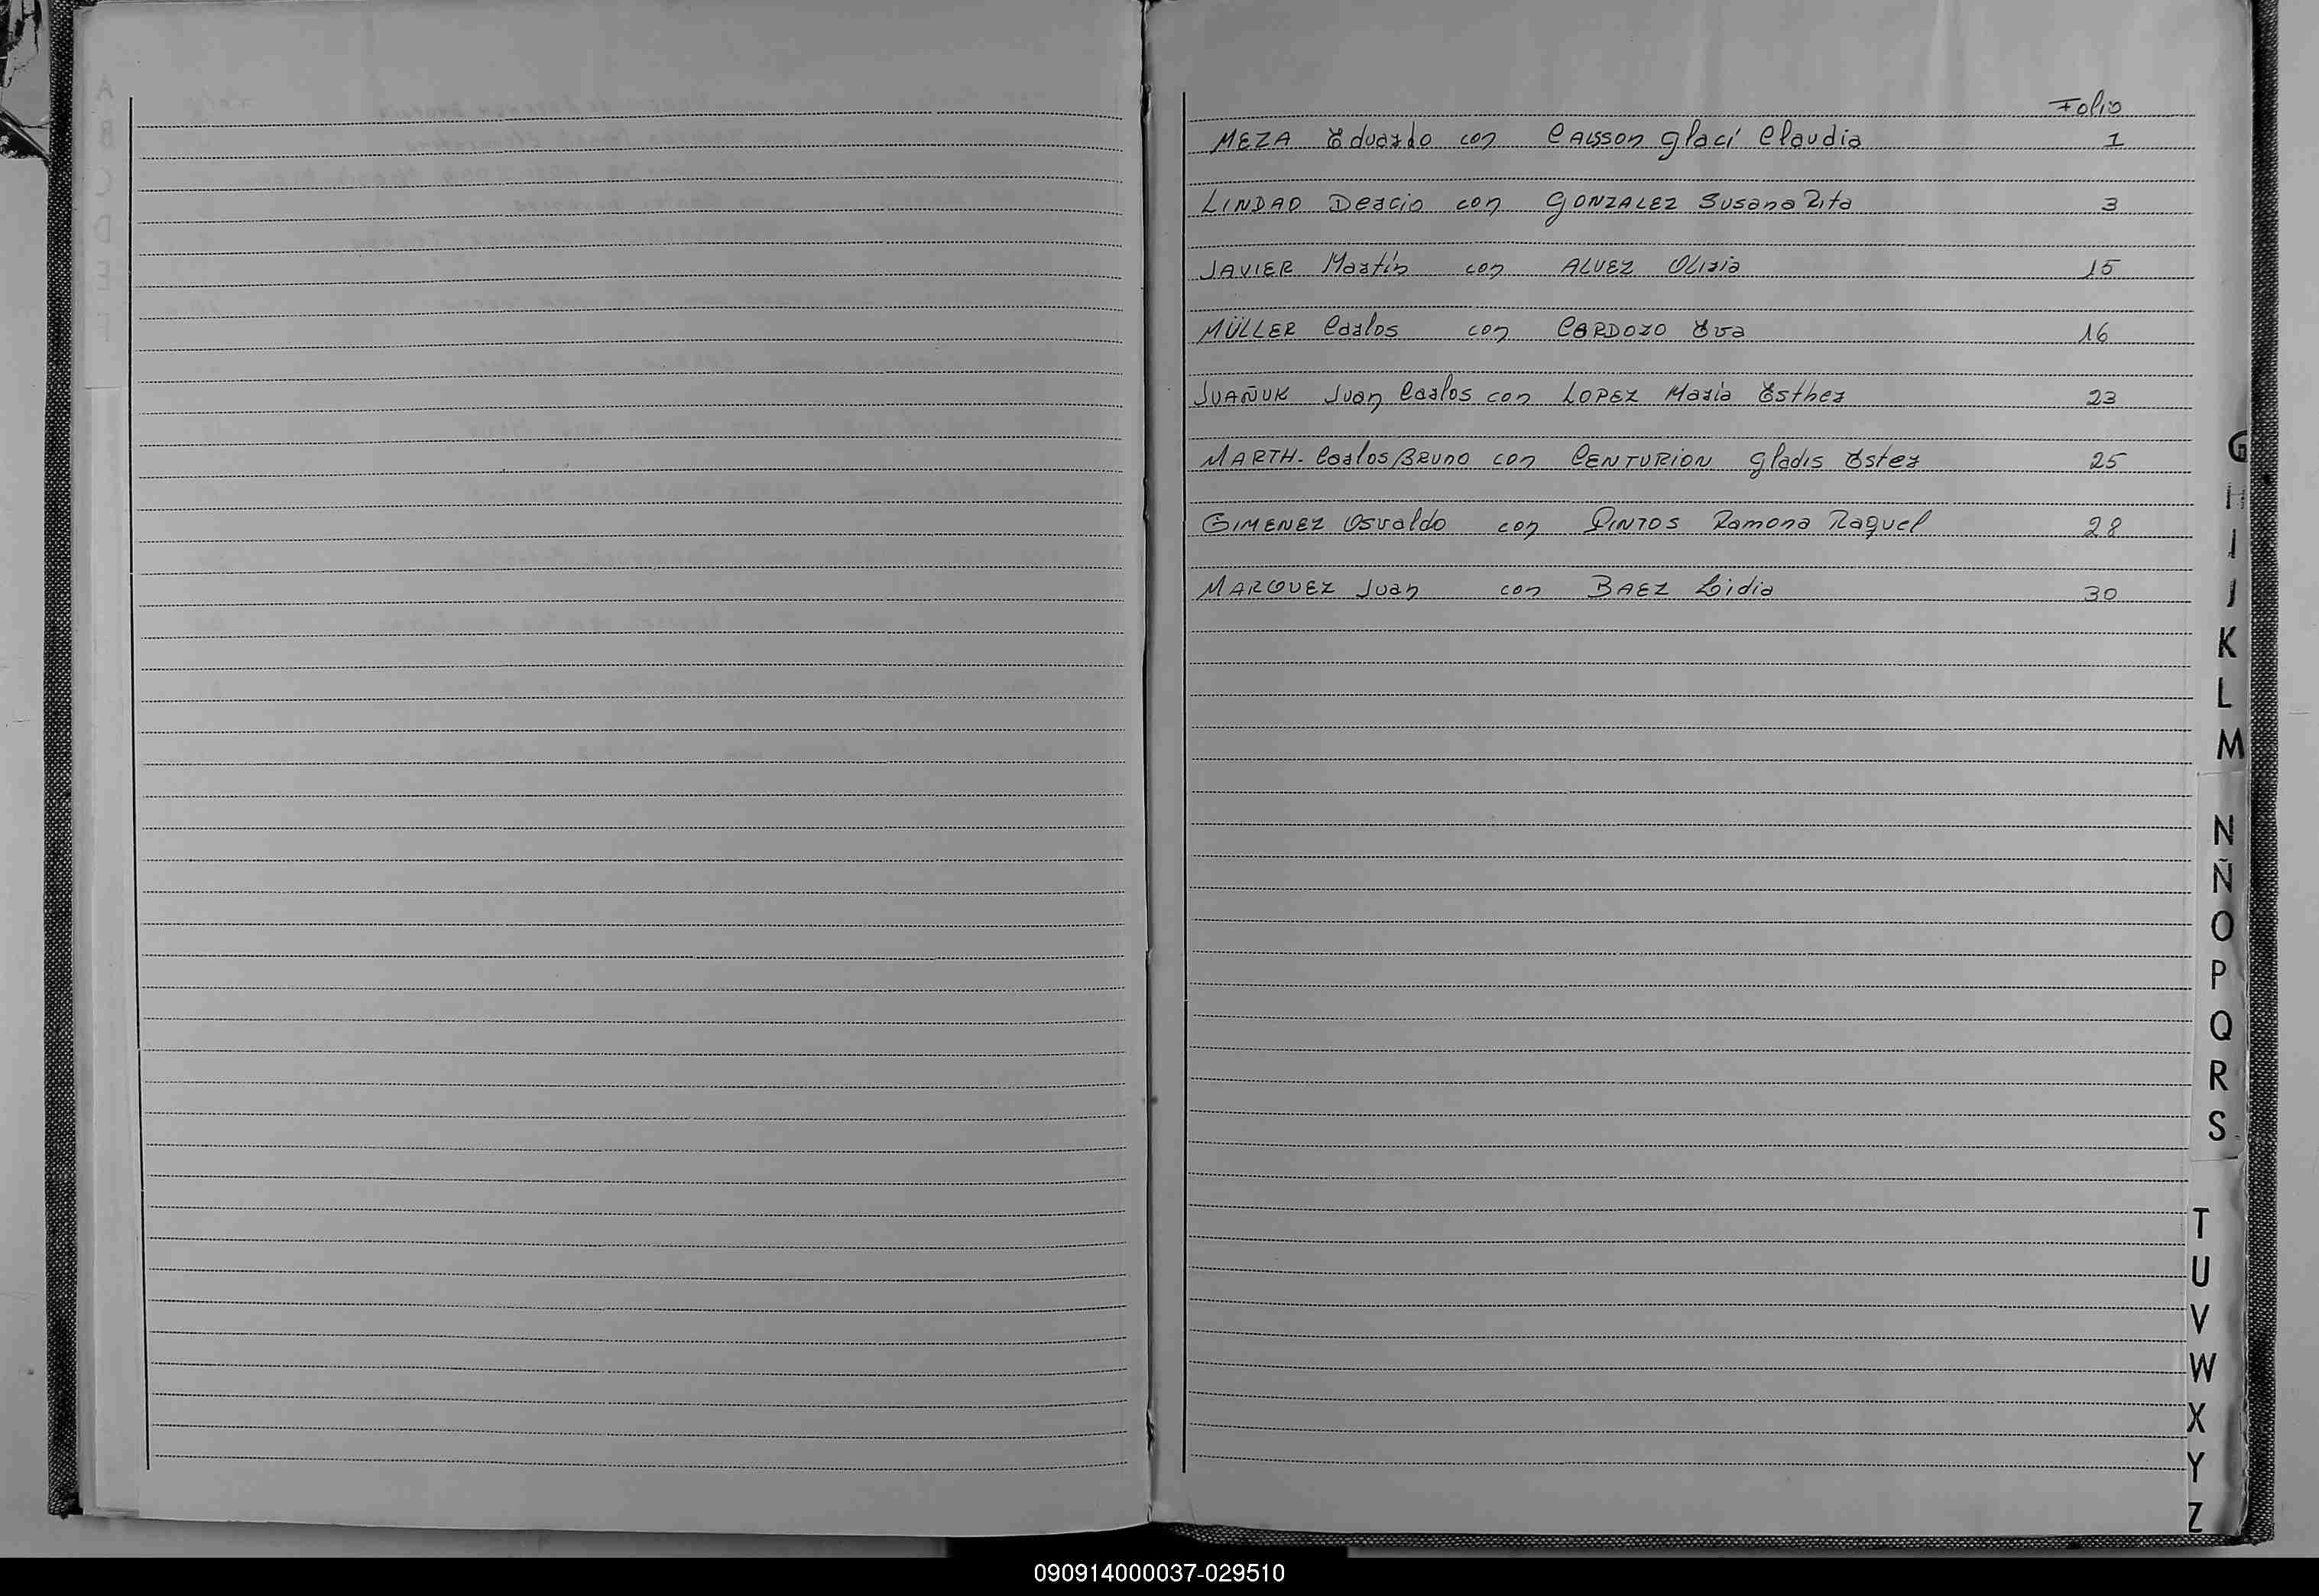 Folio
MEZA Eduardo con CALSSON Glaci Claudia 1
LINDAO Dercio con GONZALEZ Susana Rita 3
JAVIER Martín con ALVEZ Oliria 15
MÜLLER Carlos con CARDOZO Eva 16
JUAÑUK Juan Carlos con LOPEZ María Esther 23
MARTH- Carlos BRUNO con CENTURION Gladis Ester 25
GIMENEZ Osvaldo con PINTOS Ramona Raquel 28
MARQUEZ Juan con BAEZ Lidia 30
G
H
I
J
K
L
M
N
Ñ
O
P
Q
R
S
T
U
V
W
X
Y
Z
090914000037-029510